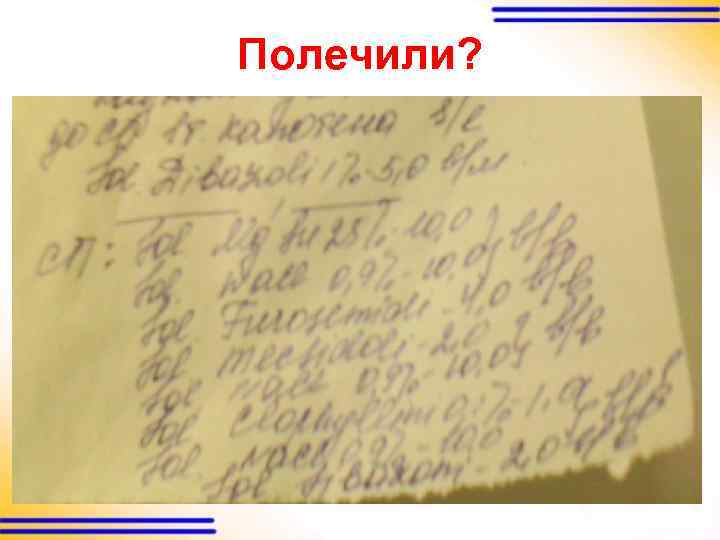 Полечили?
до СП 1т. капотена s/l
Sol. Dibazoli 1%-5,0 в/м
СП: Sol. Mg 25%-10,0 в/в
Sol. NaCl 0,9%-10,0
Sol. Furosemidi-4,0 в/в
Sol. Mecsidoli-2,0 в/в
Sol. NaCl 0,9%-10,0
Sol. 0,1%-1,0 в/в
Sol. NaCl 0,9%-10,0
Sol. Dibazoli-2,0 в/в